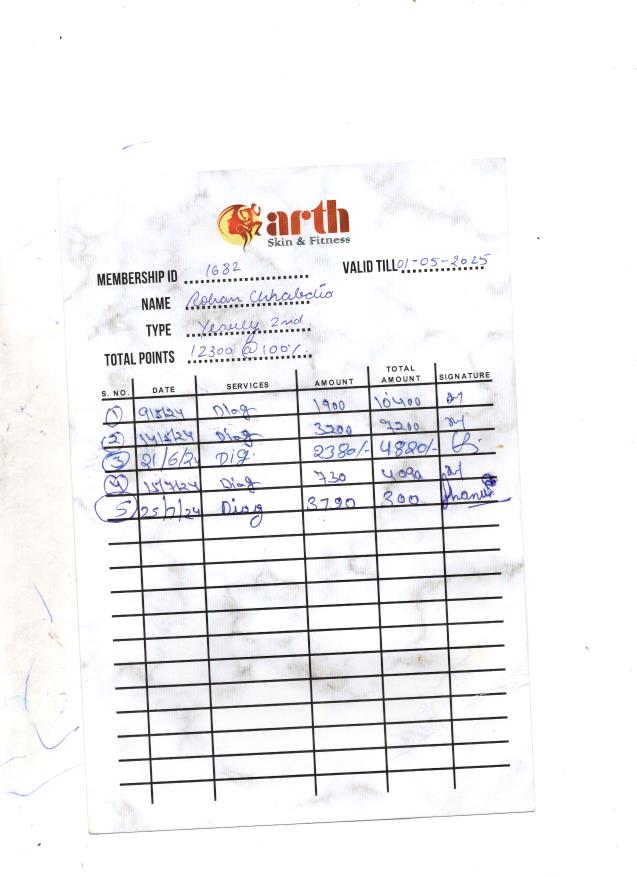 arth
Skin & Fitness
MEMBERSHIP ID 1682 VALID TILL 01-05-2025
NAME Rohan Chhabdia
TYPE Yearly 2nd
TOTAL POINTS 12300 @ 100%
S. NO. DATE SERVICES AMOUNT TOTAL AMOUNT SIGNATURE
1 9/5/24 Diag 1900 10400
2 14/5/24 Diag 3200 7200
3 21/6/24 Dig. 2380/- 4820/-
4 15/7/24 Diag 730 4090
5 25/7/24 Diag 3790 300